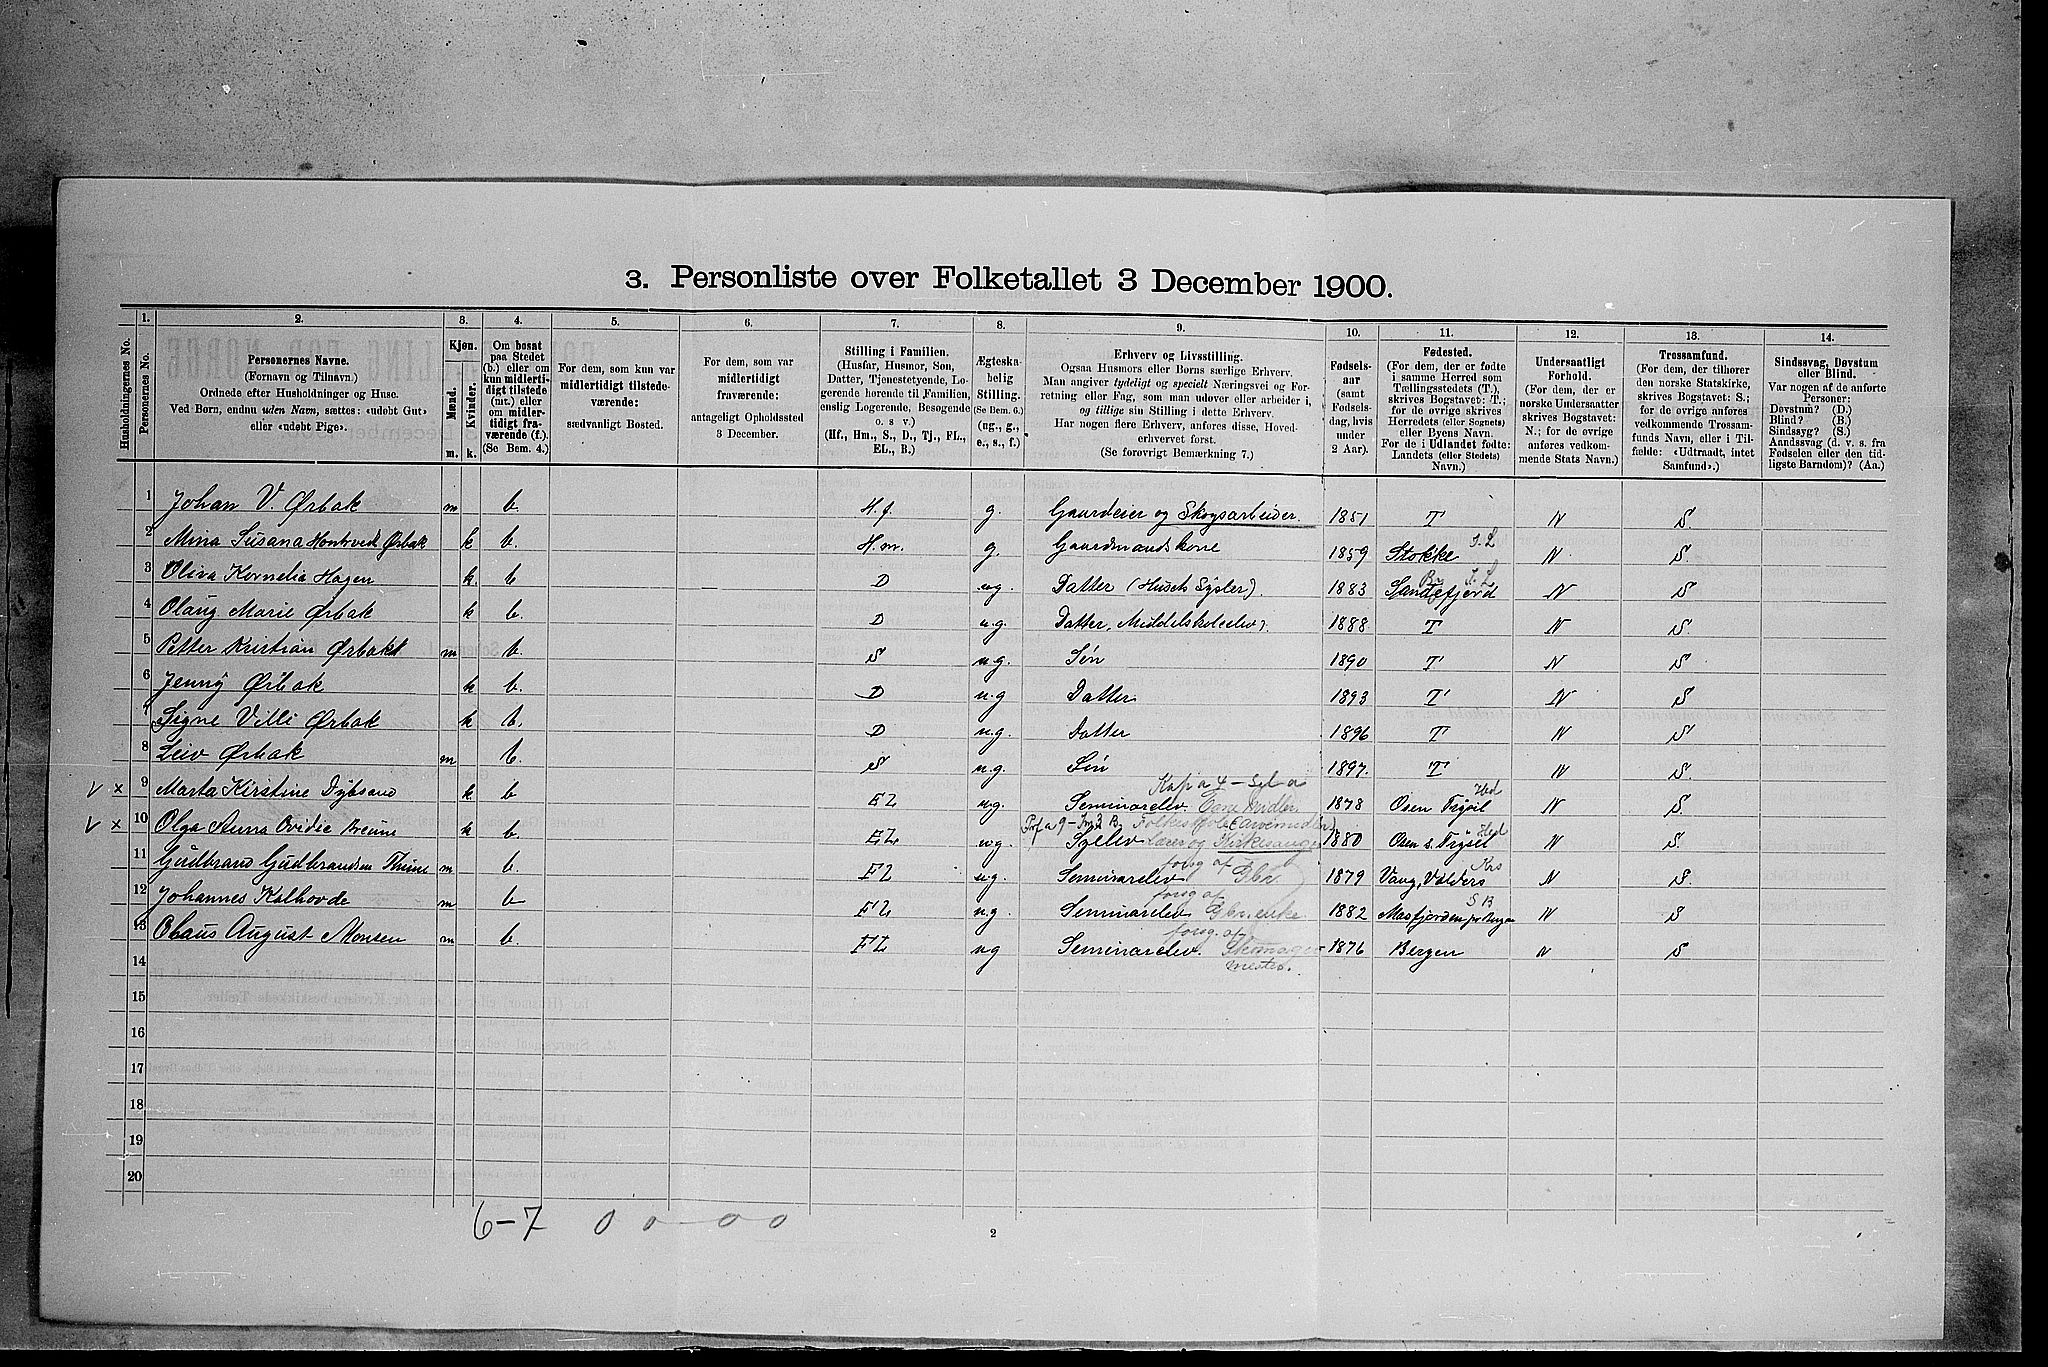 3. Personliste over Folketallet 3 December 1900.
1. 2. 3. 4. 5. 6. 7. 8. 9. 10. 11. 12. 13. 14.
Husholdningernes No.
Personernes No.
Personernes Navne.
(Fornavn og Tilnavn.)
Ordnede efter Husholdninger og Huse.
Ved Børn, endnu uden Navn, sættes: «udøbt Gut»
eller «udøbt Pige».
Kjøn.
Mænd.
Kvinder.
m. k.
Om bosat
paa Stedet
(b.) eller om
kun midlerti-
digt tilstede
(mt.) eller
om midler-
tidigt fra-
værende (f.).
(Se Bem. 4.)
For dem, som kun var
midlertidigt tilstede-
værende:
sædvanligt Bosted.
For dem, som var
midlertidigt
fraværende:
antageligt Opholdssted
3 December.
Stilling i Familien.
(Husfar, Husmor, Søn,
Datter, Tjenestetyende, Lo-
gerende hørende til Familien,
enslig Logerende, Besøgende
o. s. v.)
(Hf., Hm., S., D., Tj., FL.,
EL., B.)
Ægteska-
belig
Stilling.
(Se Bem. 6.)
(ug., g.,
e., s., f.)
Erhverv og Livsstilling.
Ogsaa Husmors eller Børns særlige Erhverv.
Man angiver tydeligt og specielt Næringsvei og For-
retning eller Fag, som man udøver eller arbeider i,
og tillige sin Stilling i dette Erhverv.
Har nogen flere Erhverv, anføres disse, Hoved-
erhvervet først.
(Se forøvrigt Bemærkning 7.)
Fødsels-
aar
(samt
Fødsels-
dag, hvis
under
2 Aar).
Fødested.
(For dem, der er fødte
i samme Herred som
Tællingsstedets (T.),
skrives Bogstavet: T.;
for de øvrige skrives
Herredets (eller Sognets)
eller Byens Navn.
For de i Udlandet fødte:
Landets (eller Stedets)
Navn.)
Undersaatligt
Forhold.
(For dem, der er
norske Undersaatter
skrives Bogstavet:
N.; for de øvrige
anføres vedkom-
mende Stats Navn.)
Trossamfund.
(For dem, der tilhører
den norske Statskirke,
skrives Bogstavet: S.;
for de øvrige anføres
vedkommende Trossam-
funds Navn, eller i Til-
fælde: «Udtraadt, intet
Samfund».)
Sindssvag, Døvstum
eller Blind.
Var nogen af de anførte
Personer:
Døvstum? (D.)
Blind? (B.)
Sindssyg? (S.)
Aandssvag (d. v. s. fra
Fødselen eller den tid-
ligste Barndom)? (Aa.)
1 Johan V. Ørbak m b. H.f. g. Gaardeier og Skogsarbeider. 1851 T N S.
2 Mina Susana Hontvedt Ørbak k b. H.m. g. Gaardmandskone 1859 Stokke J.L N. S.
3 Oliva Kornelia Hagen k. b D ug. Datter (Huset Sysler). 1883 Sandefjord J.L N S
4 Olaug Marie Ørbak k b. D u.g. Datter, Middelskoleelev. 1888. T N S.
5 Petter Kristian Ørbak m b. S u.g. Søn 1890 T N S
6 Jenny Ørbak k b. D u.g Datter 1893 T N S
7 Signe Villi Ørbak k b. D u.g. Datter 1896 T N S
8 Leiv Ørbak m b. S u.g. Søn 1897. T N S.
Kap a 4 – sel a
V × 9 Marta Kirstine Dybsand k b EL ug. Seminarelev Egne Midler 1878 Osen Trysil Hed N S.
V × 10 Olga Anna Ovidie Breune k b. EL ug. Syelev lærer og Kirkesanger 1880 Osen s. Trysil Hed N S.
11 Gudbrand Gudbrandsen Thune m b. EL u.g. Seminarelev forsg af Gbr. 1879 Vang, Valders Krs N S.
12 Johannes Kalhovde m b EL u.g. Seminarelev forsg af Gbr. enke 1882 Masfjorden pr Bergen S B N S
13 Olaus August Monsen m b. EL ug Seminarelev. forsg. af Skomager- 1876 Bergen N S
mester.
14
15
16
17
18
19
20
6–7 0 0 – 0 0
2